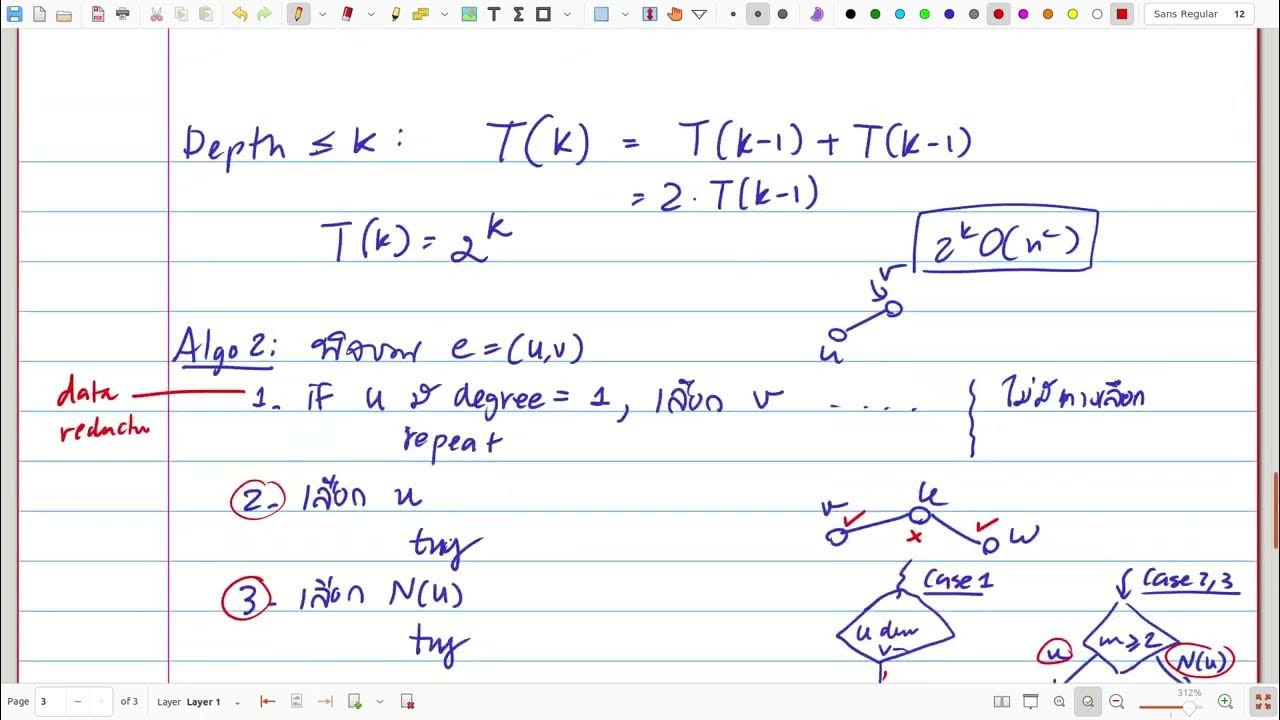 Sans Regular 12
Depth ≤ k : T(k) = T(k-1) + T(k-1)
= 2 · T(k-1)
T(k) = 2^k
2^k O(n^c)
v
u
Algo 2: พิจารณา e = (u,v)
data
1. if u มี degree = 1, เลือก v ..... ไม่มีทางเลือก
repeat
2. เลือก u
v u w
try
3. เลือก N(u)
try
Case 1
Case 2,3
u
v
m ≥ 2
u
N(u)
Page 3 of 3 Layer Layer 1 312%